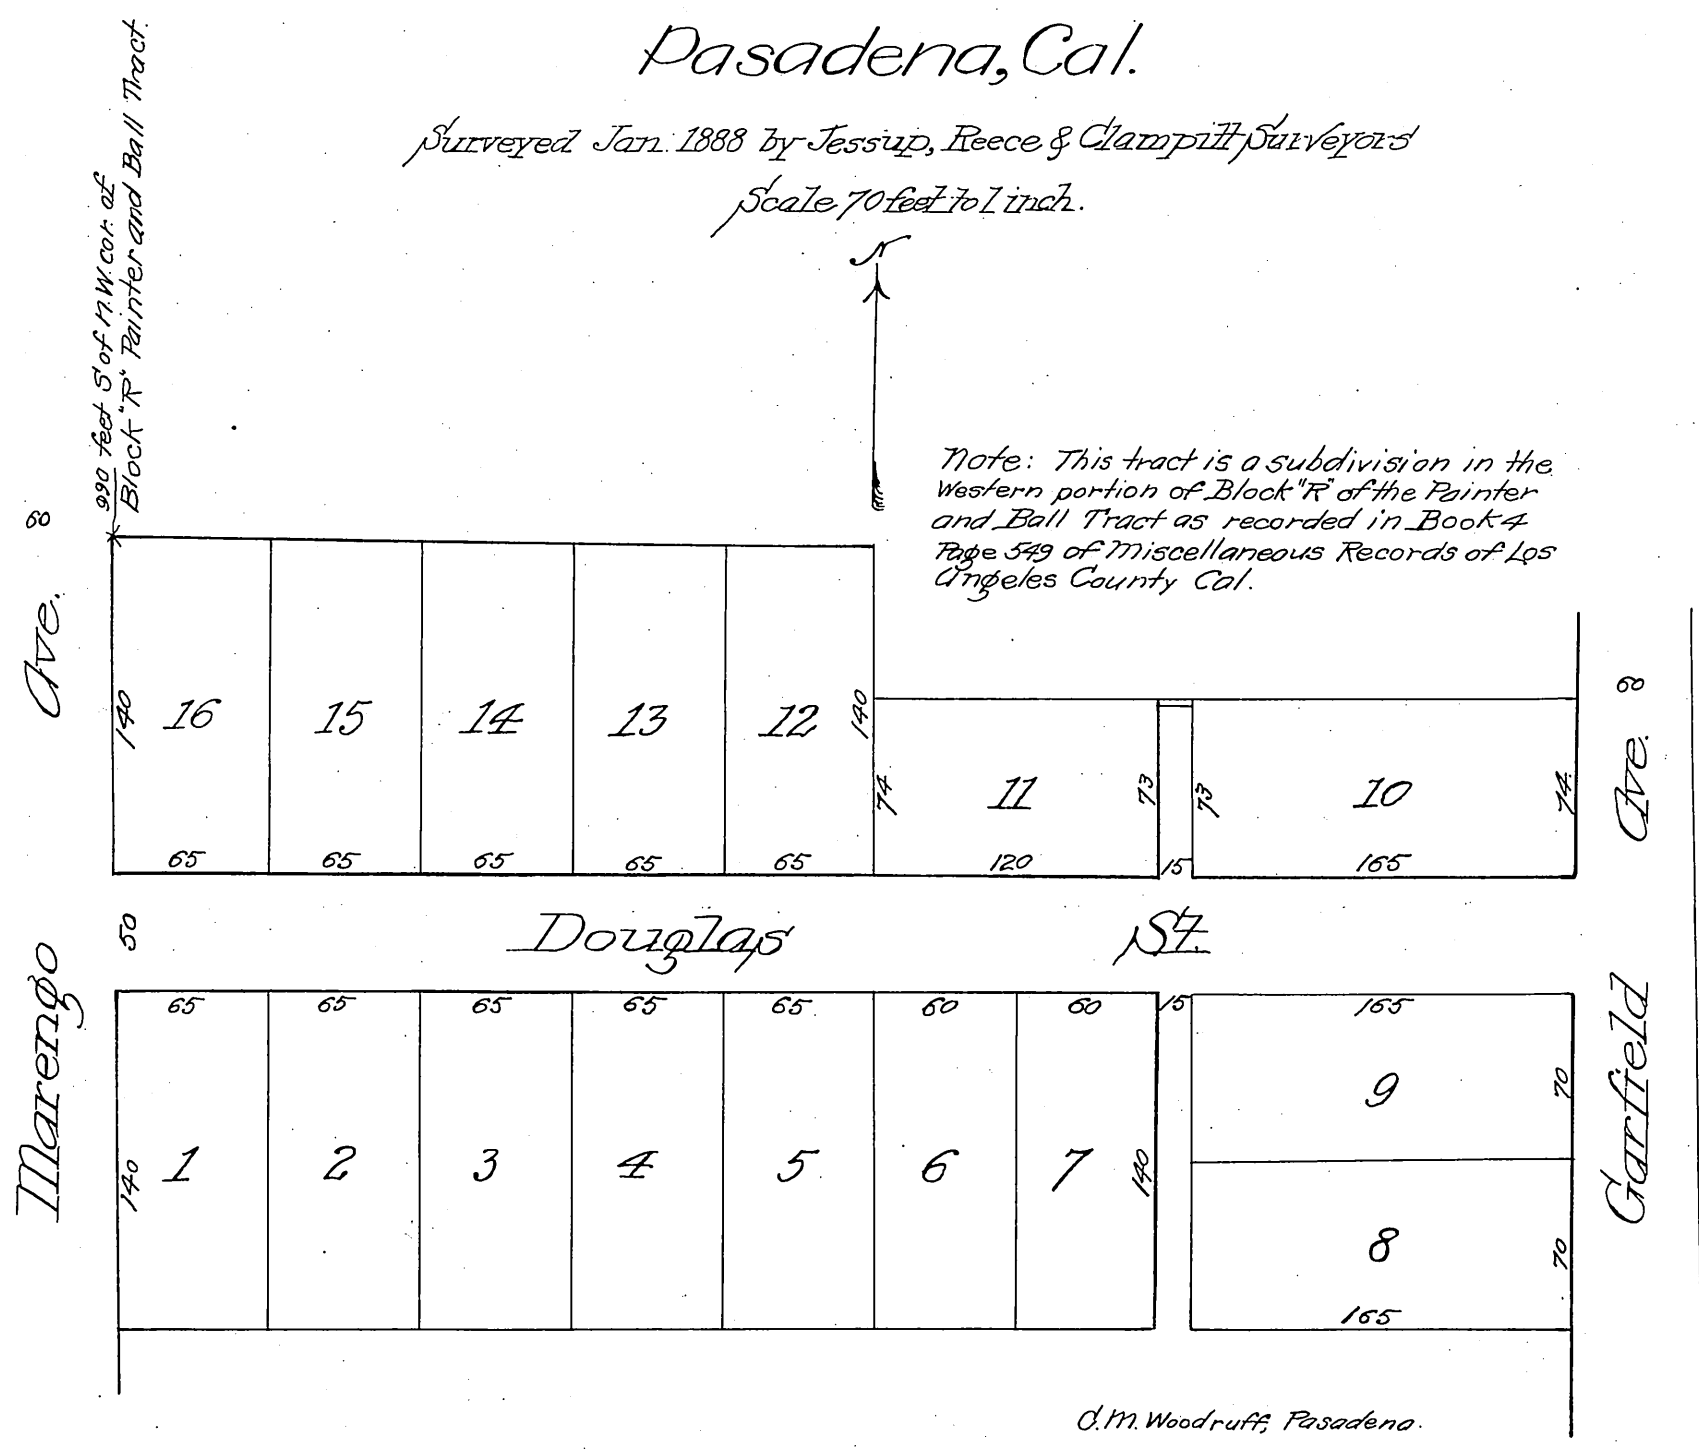 Pasadena, Cal.
Surveyed Jan. 1888 by Jessup, Reece & Clampitt Surveyors
Scale 70 feet to 1 inch.
N
990 feet S of N.W. cor. of
Block "R" Painter and Ball Tract.
Note: This tract is a subdivision in the
Western portion of Block "R" of the Painter
and Ball Tract as recorded in Book 4
Page 549 of Miscellaneous Records of Los
Angeles County Cal.
60
Marengo Ave.
60
Garfield Ave.
140 16 15 14 13 12 140
74 11 73 73 10 74
65 65 65 65 65 120 15 165
50 Douglas St.
65 65 65 65 65 60 60 15 165
9 70
140 1 2 3 4 5 6 7 140
8 70
165
C.M. Woodruff, Pasadena.